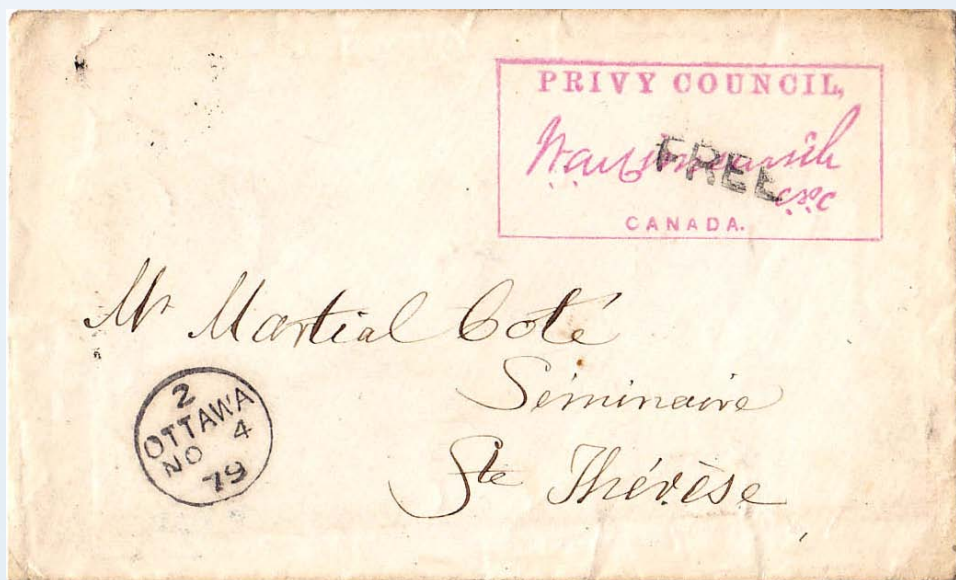 PRIVY COUNCIL,
FREE
CANADA.
Mr Martial Coté
Séminaire
Ste Thérèse
2
OTTAWA
NO 4
79